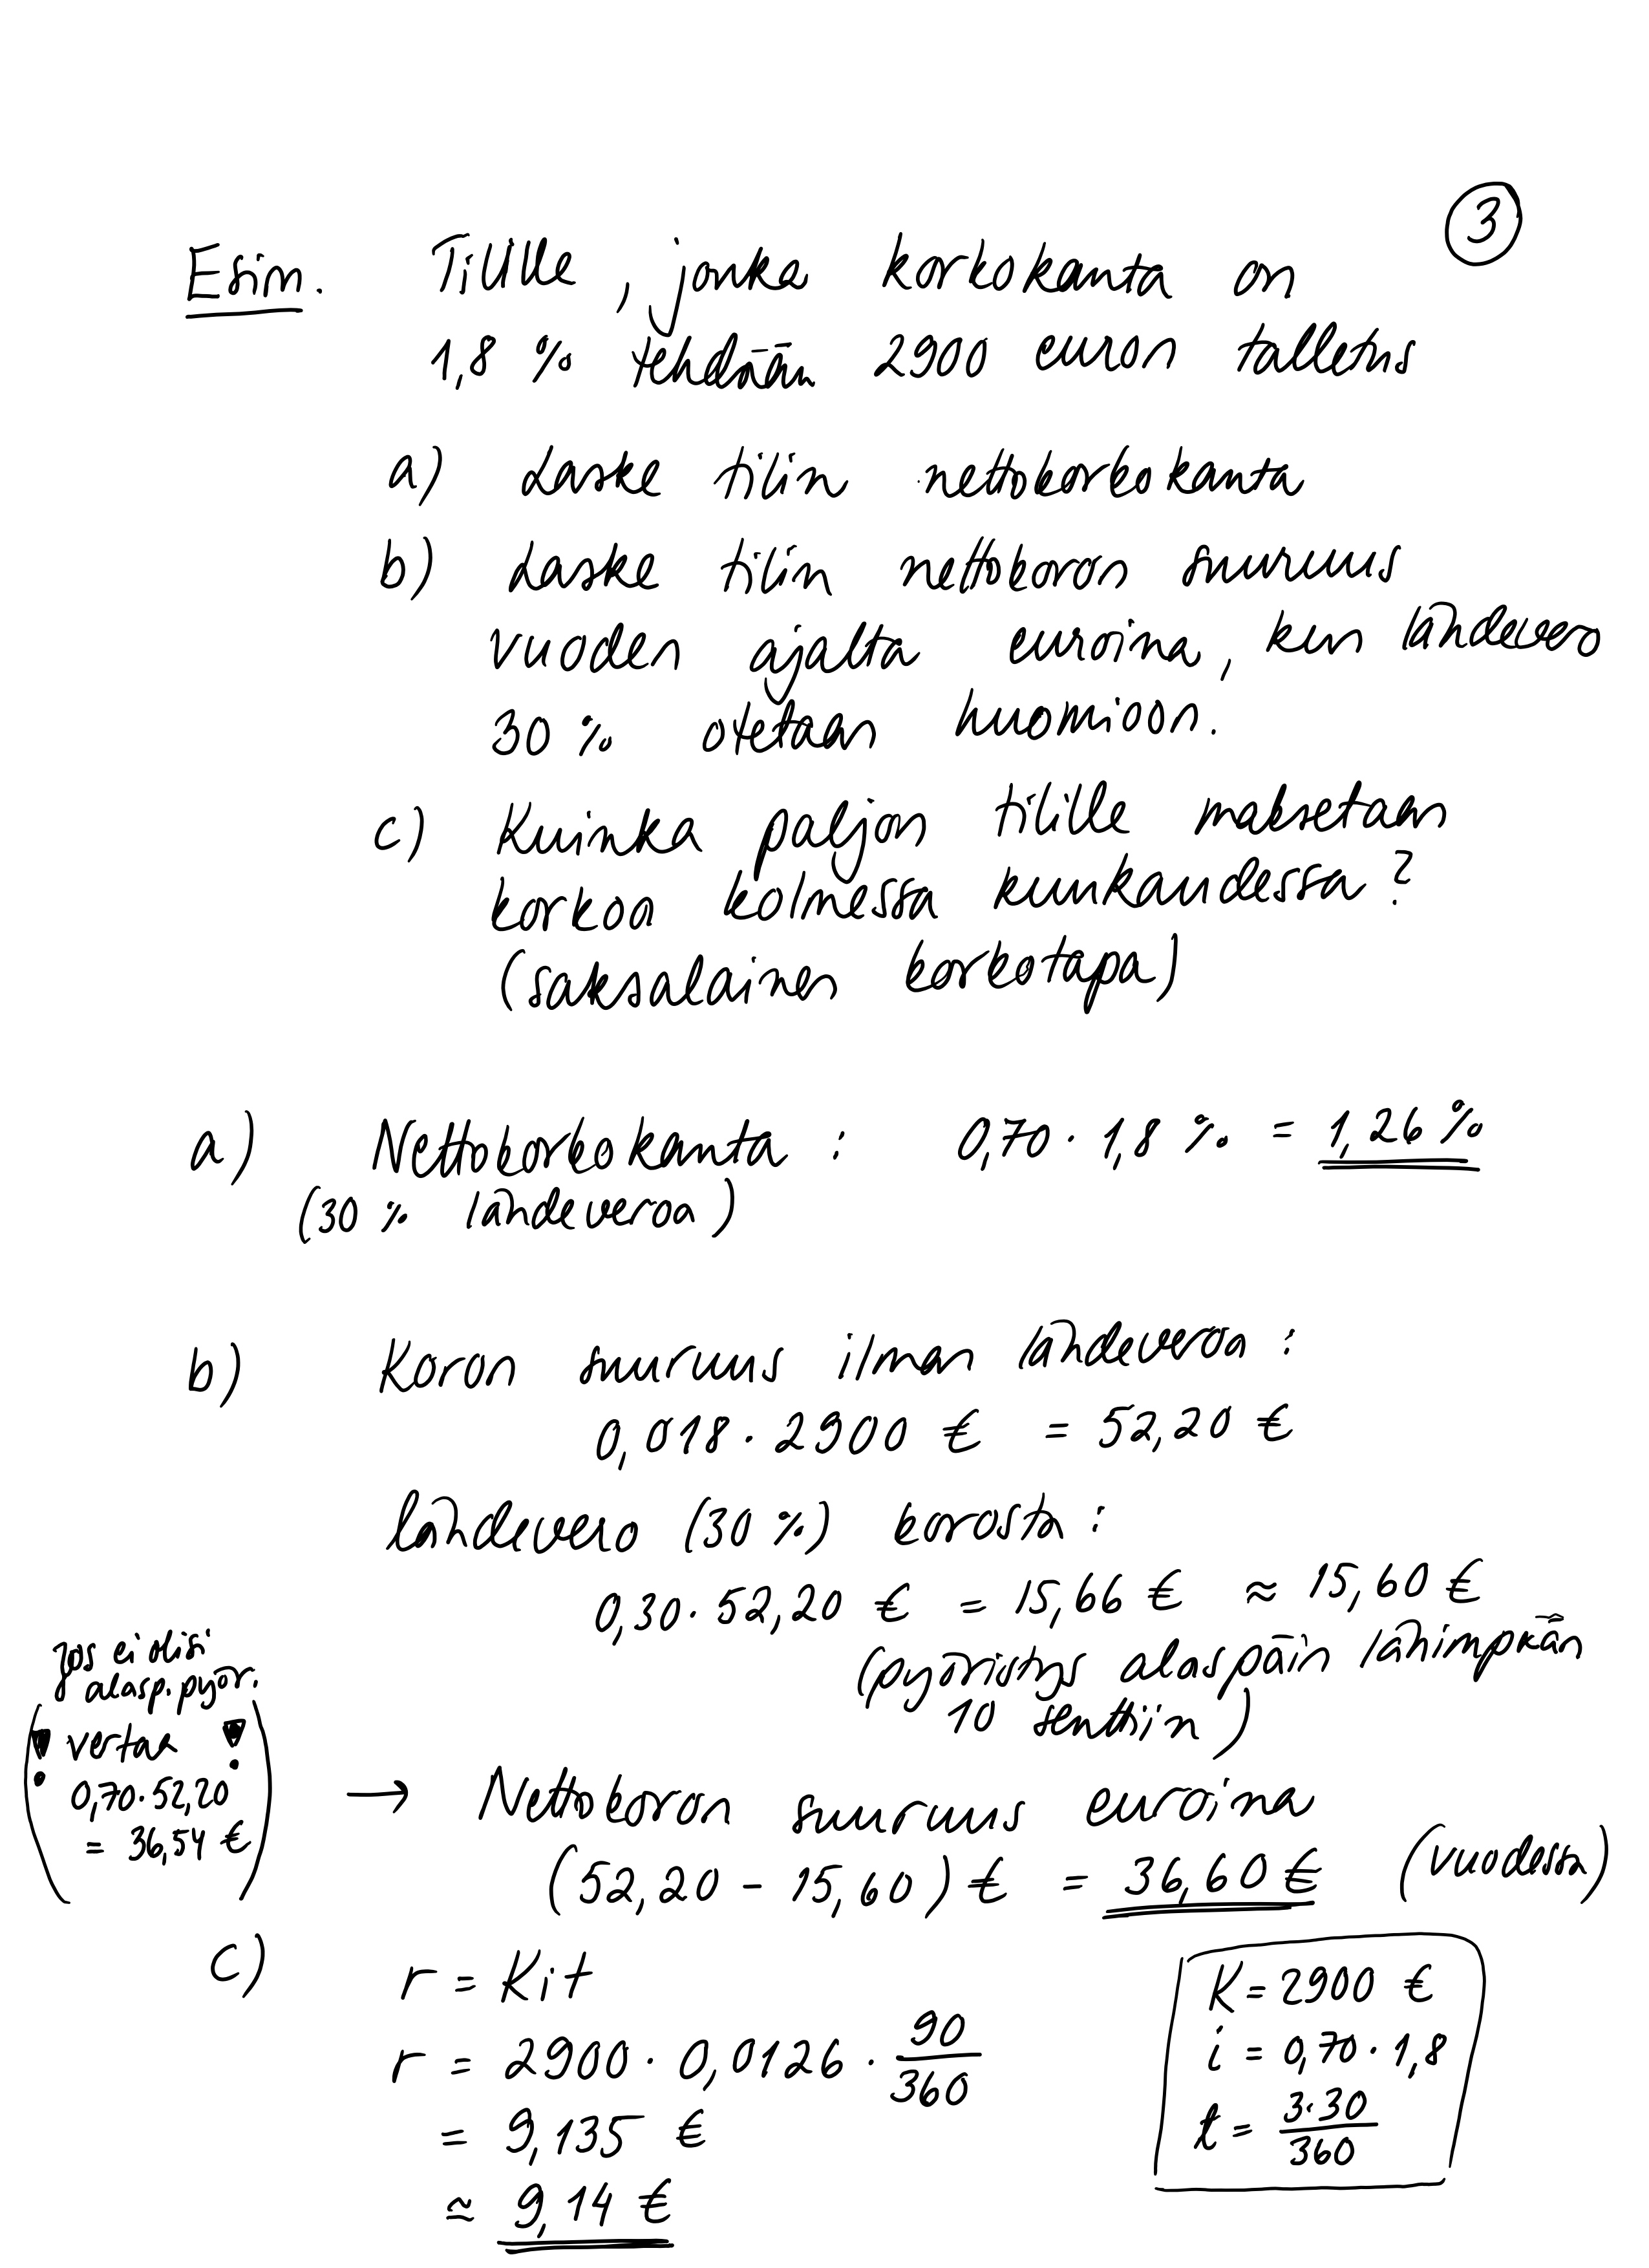 3
Esim. Tilille, jonka korkokanta on
1,8 % tehdään 2900 euron talletus
a) Laske tilin nettokorkokanta
b) Laske tilin nettokoron suuruus
vuoden ajalta euroina, kun lähdevero
30 % otetaan huomioon.
c) Kuinka paljon tilille maksetaan
korkoa kolmessa kuukaudessa?
(saksalainen korkotapa)
a) Nettokorkokanta : 0,70 · 1,8 % = 1,26 %
(30 % lähdeveroa)
b) Koron suuruus ilman lähdeveroa :
0,018 · 2900 € = 52,20 €
lähdevero (30 %) korosta :
0,30 · 52,20 € = 15,66 € ≈ 15,60 €
(pyöristys alaspäin lähimpään
10 senttiin)
Jos ei olisi
alasp. pyör.
(! vertaa !
0,70 · 52,20
= 36,54 €)
→ Nettokoron suuruus euroina
(52,20 - 15,60) € = 36,60 € (vuodessa)
c) r = Kit
r = 2900 · 0,0126 · 90/360
= 9,135 €
≈ 9,14 €
K = 2900 €
i = 0,70 · 1,8
t = 3·30/360